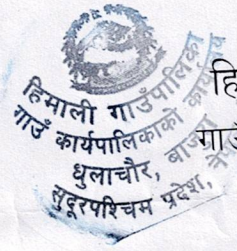 हिमाली गाउँपालिका
गाउँ कार्यपालिकाको कार्यालय
धुलाचौर, बाजुरा
सुदूरपश्चिम प्रदेश, नेपाल
हि
गाउँ